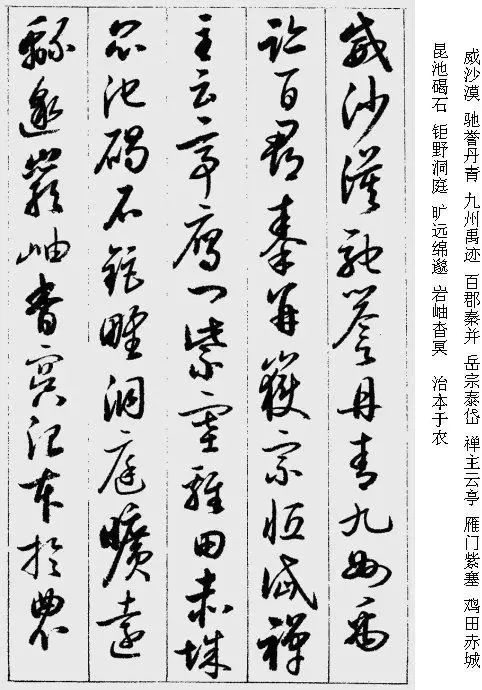 威沙漠 驰誉丹青 九州禹迹 百郡秦并 岳宗泰岱 禅主云亭 雁门紫塞 鸡田赤城
昆池碣石 钜野洞庭 旷远绵邈 岩岫杳冥 治本于农
威沙漠馳譽丹青九州禹
跡百郡秦并嶽宗恒岱禪
主云亭雁門紫塞雞田赤城
昆池碣石鉅野洞庭曠遠
緜邈巖岫杳冥治本於農